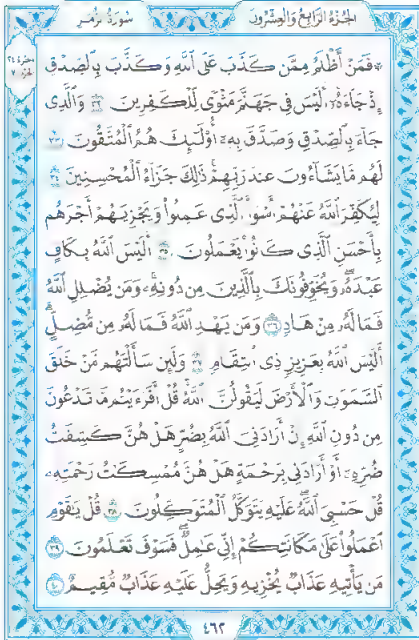 الجزء الرابع والعشرون
سورة زمر
فمن أظلم ممن كذب على الله وكذب بالصدق
إذ جاءه أليس في جهنم مثوى للكفرين ٣٢ والذي
جاء بالصدق وصدق به أولئك هم المتقون ٣٣
لهم ما يشاءون عند ربهم ذلك جزاء المحسنين ٣٤
ليكفر الله عنهم أسوأ الذي عملوا ويجزيهم أجرهم
بأحسن الذي كانوا يعملون ٣٥ أليس الله بكاف
عبده ويخوفونك بالذين من دونه ومن يضلل الله
فما له من هاد ٣٦ ومن يهد الله فما له من مضل
أليس الله بعزيز ذي انتقام ٣٧ ولئن سألتهم من خلق
السموت والأرض ليقولن الله قل أفرءيتم ما تدعون
من دون الله إن أرادني الله بضر هل هن كشفت
ضره أو أرادني برحمة هل هن ممسكت رحمته
قل حسبي الله عليه يتوكل المتوكلون ٣٨ قل يقوم
اعملوا على مكانتكم إني عمل فسوف تعلمون ٣٩
من يأتيه عذاب يخزيه ويحل عليه عذاب مقيم ٤٠
٤٦٢